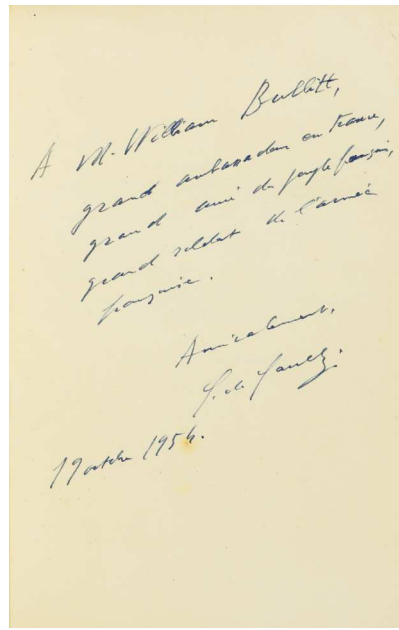 A M. William Bullitt,
grand ambassadeur en France,
grand ami du peuple français,
grand soldat de l'armée
française.
Amicalement.
C. de Gaulle.
19 octobre 1954.